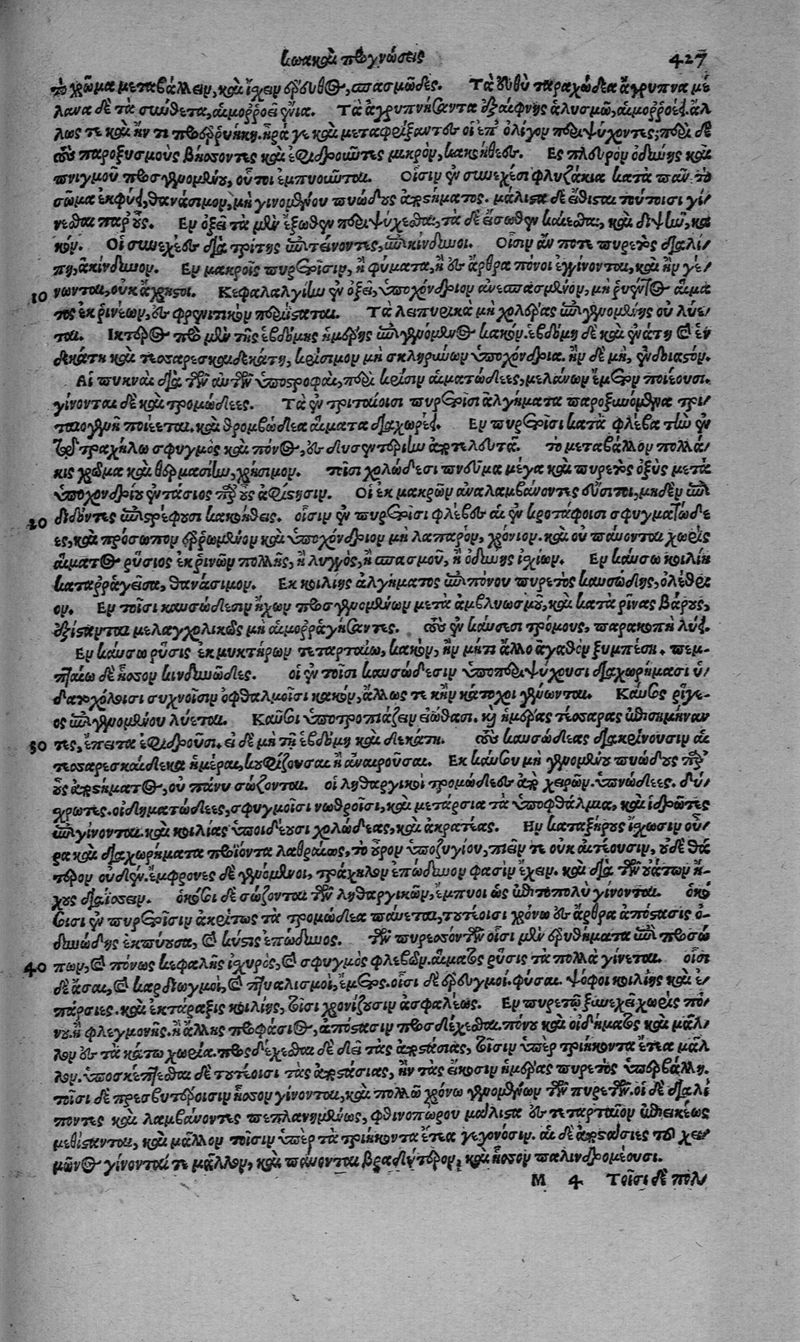 κωακαὶ προγνώσεις 427
τὸ χρῶμα μεταβάλλειν, καὶ ἴσχειν ἐρευθος, σπασμῶδες. Τὰ ταραχώδεα ἄγρυπνα μέ-
λανα δὲ τὰ σύνθετα, αἱμορροεῖ ἔνια. Τὰ ἀγρυπνήσαντα ἐξαίφνης ἀλυσμῷ, αἱμορροεῖ. ἄλ-
λως τε καὶ ἤν τι προερρύηκῃ. ἦρά γε καὶ μεταφρίξαντες οἱ ἐπ' ὀλίγον περιψύχοντες; περὶ δὲ
τοὺς παροξυσμοὺς βήσσοντες καὶ ἐφιδροῦντες μικρὸν, κακοήθεες. Ες πλευρὸν ὀδύνης καὶ
πνιγμοῦ προσγενομένου, οὗτοι ἐμπυοῦνται. Οἷσιν ἐν συνεχέσι φλυζάκια κατὰ πᾶν τὸ
σῶμα ἐκφύει, θανάσιμον, μὴ γινομένου πυώδους ἀποστήματος. μάλιστα δὲ εἴθισται τούτοισι γί-
νεσθαι παρ' οὖς. Εν ὀξεῖ τὰ μὲν ἔξωθεν περιψύχεσθαι, τὰ δὲ ἔσωθεν καίεσθαι, καὶ διψῆν, κα-
κόν. Οἱ συνεχέες διὰ τρίτης ἐπιτείνοντες, ἐπικίνδυνοι. Οἷσιν ἄν ποτε πυρετὸς διαλί-
πῃ, ἀκίνδυνον. Εν μακροῖς πυρετοῖσιν, ἢ φύματα, ἢ ἐς ἄρθρα πόνοι ἐγγίνονται, καὶ ἢν γέ-
10 νωνται, οὐκ ἄχρηστοι. Κεφαλαλγίη ἐν ὀξεῖ, ὑποχόνδριον ἀνεσπασμένον, μὴ ῥυέντος αἵμα-
τος ἐκ ῥινέων, ἐς φρενιτικὸν περιίσταται. Τὰ λειπυρικὰ μὴ χολέρας ἐπιγενομένης οὐ λύε-
ται. Ικτερος πρὸ μὲν τῆς ἑβδόμης ἡμέρης ἐπιγενόμενος κακόν. ἑβδόμῃ δὲ καὶ ἐνάτῃ καὶ ἑν-
δεκάτῃ καὶ τεσσαρεσκαιδεκάτῃ, κρίσιμον μὴ σκληρύνων ὑποχόνδρια. ἢν δὲ μὴ, ἐνδοιαστόν.
Αἱ πυκναὶ διὰ τῶν αὐτῶν ὑποστροφαὶ, περὶ κρίσιν αἱματώδεες, μελάνων ἔμετον ποιέουσι.
γίνονται δὲ καὶ τρομώδεες. Τὰ ἐν τριταίοισι πυρετοῖσι ἀλγήματα παροξυνόμενα τρι-
ταιογενῆ ποιέεται. καὶ θρομβώδεα αἵματα διαχωρέει. Εν πυρετοῖσι κατὰ φλέβα τὴν ἐν
τῷ τραχήλῳ σφυγμὸς καὶ πόνος, ἐς δυσεντερίην ἀποτελευτᾷ. τὸ μεταβάλλον πολλά-
κις χρῶμα καὶ θερμασίην, χρήσιμον. τοῖσι χολώδεσι πνεῦμα μέγα καὶ πυρετὸς ὀξὺς μετὰ
ὑποχονδρίου ἐντάσιος τὰ παρ' οὖς ἀφίστησιν. Οἱ ἐκ μακρῶν ἀναλαμβάνοντες εὔσιτοι, μηδὲν ἐπι-
20 διδόντες ὑποστρέφουσι κακοήθεες. οἷσιν ἐν πυρετοῖσι φλέβες αἱ ἐν κροτάφοισι σφυγματώδε-
ες, καὶ πρόσωπον ἐρρωμένον καὶ ὑποχόνδριον μὴ λαπαρὸν, χρόνιον. καὶ οὐ παύονται χωρὶς
αἵματος ῥύσιος ἐκ ῥινῶν πολλῆς, ἢ λυγγὸς, ἢ σπασμοῦ, ἢ ὀδύνης ἰσχίων. Εν καύσῳ κοιλίη
καταρραγεῖσα, θανάσιμον. Εκ κοιλίης ἀλγήματος ἐπιπόνου πυρετὸς καυσώδης, ὀλέθρι-
ον. Εν τοῖσι καυσώδεσιν ἤχων προσγενομένων μετὰ ἀμβλυωσμοῦ, καὶ κατὰ ῥῖνας βάρους,
ἐξίστανται μελαγχολικῶς μὴ αἱμορραγήσαντες. τοὺς ἐν καύσοισι τρόμους, παρακοπὴ λύει.
Εν καύσῳ ῥύσις ἐκ μυκτήρων τεταρταίῳ, κακὸν, ἢν μήτι ἄλλο ἀγαθὸν ξυμπέσῃ. πεμ-
πταίῳ δὲ ἧσσον κινδυνῶδες. οἱ ἐν τοῖσι καυσώδεσιν ὑποπεριψύχουσι διαχωρήμασι ὑ-
δατοχόλοισι συχνοῖσιν ὀφθαλμοῖσι κακὸν, ἄλλως τε κἢν κάτοχοι γένωνται. Καῦσος ῥίγε-
ος ἐπιγενομένου λύεται. Καῦσοι ὑποτροπιάζειν εἰώθασι. καὶ ἡμέρας τέσσαρας ἐπισημήναν-
30 τες, ἔπειτα ἐφιδροῦσι. εἰ δὲ μὴ τῇ ἑβδόμῃ καὶ δεκάτῃ. τοὺς καυσώδεας διακρίνουσιν αἱ
τεσσαρεσκαίδεκα ἡμέραι, κουφίζουσαι ἢ ἀναιροῦσαι. Εκ καύσου μὴ γενομένου πυώδους παρ'
οὖς ἀποστήματος, οὐ πάνυ σώζονται. οἱ ληθαργικοὶ τρομώδεες ἀπὸ χειρῶν. ὑπνώδεες. δύσ-
χρωτες. οἰδηματώδεες, σφυγμοῖσι νωθροῖσι, καὶ μετάρσια τὰ ὑποφθάλμια, καὶ ἱδρῶτες
ἐπιγίνονται. καὶ κοιλίας ὑποιδέουσι χολώδεας, καὶ ἀκρατέας. Ην καταξήρους ἴσχωσιν οὖ-
ρα καὶ διαχωρήματα προϊόντα λαθραίως, τὸ οὖρον ὑποζυγίου, πιεῖν τι οὐκ αἰτέουσιν, οὐδὲ θά-
τερον οὐδέν. ἔμφρονες δὲ γενόμενοι, τράχηλον ἐπώδυνον φασὶν ἔχειν. καὶ διὰ τῶν ὤτων ἤ-
χους διαΐσσειν. ὁκόσοι δὲ σώζονται τῶν ληθαργικῶν, ἔμπυοι ὡς ἐπιτοπολὺ γίνονται. ὁκό-
σοισι ἐν πυρετοῖσιν ἀκρίτως τὰ τρομώδεα παύεται, τούτοισι χρόνῳ ἐς ἄρθρα ἀπόστασις ὀ-
δυνώδης ἐκπύουσα, καὶ κύστις ἐπώδυνος. τῶν πυρεσσόντων οἷσι μὲν ἐρυθήματα ἐπὶ προσώ-
40 πων, καὶ πόνος κεφαλῆς ἰσχυρὸς, καὶ σφυγμὸς φλεβῶν. αἵματος ῥύσις τὰ πολλὰ γίνεται. οἷσι
δὲ ἆσαι, καὶ καρδιωγμοὶ, καὶ πτυαλισμοὶ, ἔμετος. οἷσι δὲ ἐρευγμοὶ. φῦσαι. ψόφοι κοιλίης καὶ ἐ-
πάρσιες. καὶ ἐκτάραξις κοιλίης, τοῖσι χρονίζουσιν ἀσφαλέως. Εν πυρετῷ ξυνεχεῖ χωρὶς πό-
νου ἢ φλεγμονῆς. ἢ ἄλλης προφάσιος, ἀπόστασιν προσδέχεσθαι. πόνου καὶ οἰδήματος καὶ μᾶλ-
λον ἐς τὰ κάτω χωρία. προσδέχεσθαι δὲ δεῖ τὰς ἀποστάσιας, τοῖσιν ὑπὲρ τριήκοντα ἔτεα μᾶλ-
λον. ὑποσκέπτεσθαι δὲ τούτοισι τὰς ἀποστάσιας, ἢν τὰς εἴκοσιν ἡμέρας πυρετὸς ὑπερβάλλῃ.
τοῖσι δὲ πρεσβυτέροισιν ἧσσον γίνονται, καὶ πολλῷ χρόνῳ γενομένων τῶν πυρετῶν. οἱ δὲ διαλί-
ποντες καὶ λαμβάνοντες πεπλανημένως, φθινοπώρου μάλιστα ἐς τεταρταῖον ἐπιεικέως
μεθίστανται, καὶ μᾶλλον τοῖσιν ὑπὲρ τὰ τριήκοντα ἔτεα γεγονόσιν. αἱ δὲ ἀποστάσιες τοῦ χει-
μῶνος γίνονταί τε μᾶλλον, καὶ παύονται βραδύτερον, καὶ ἧσσον παλινδρομέουσι.
M 4 Τοῖσι δὲ πολ-